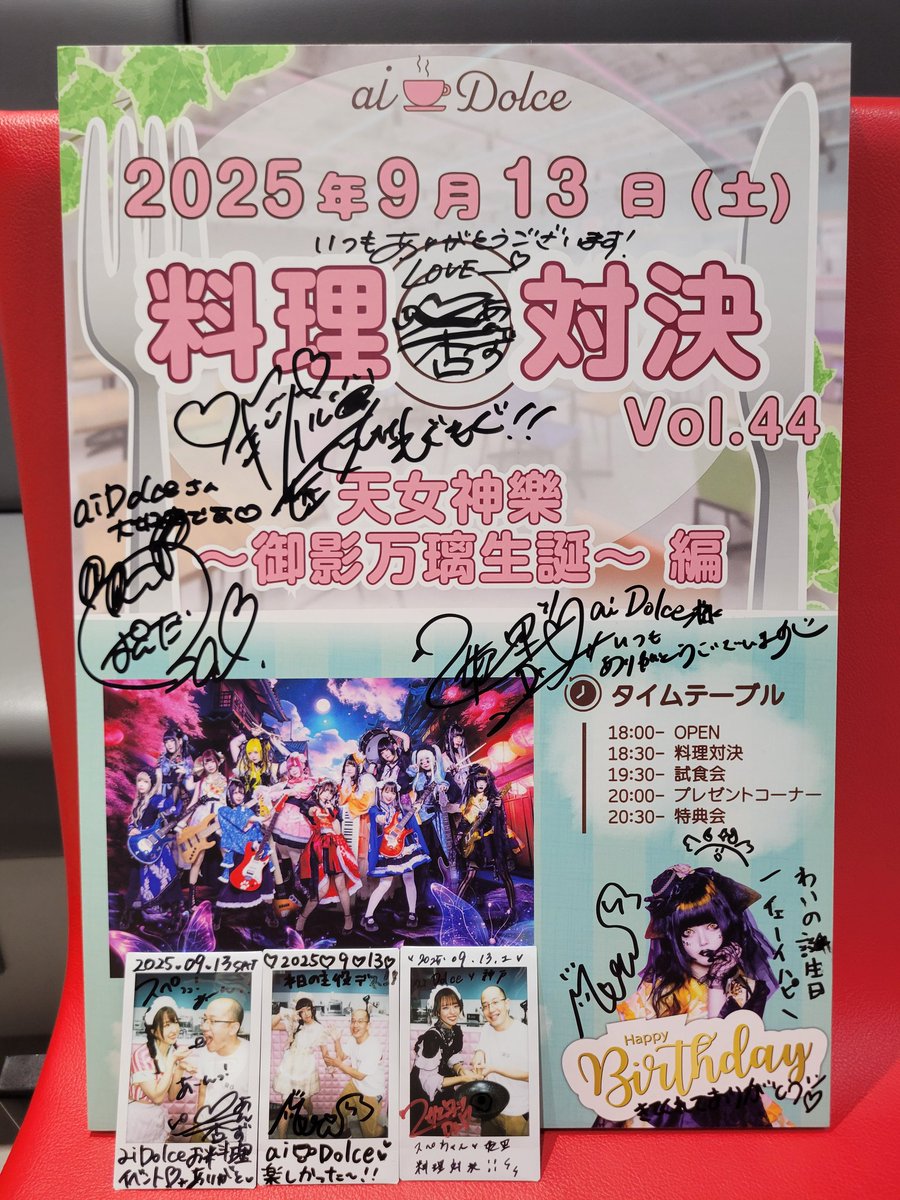 ai Dolce
2025年9月13日(土)
いつもありがとうございます!
LOVE
料理対決
Vol.44
aiDolceさん
天女神樂
～御影万璃生誕～ 編
ai Dolce様
いつも
ありがとうございます
タイムテーブル
18:00- OPEN
18:30- 料理対決
19:30- 試食会
20:00- プレゼントコーナー
20:30- 特典会
わいの誕生日
イェーイ
Happy
Birthday
2025.09.13 SAT
あーんっ!
あんず
aiDolceお料理
イベント ありがと
2025 9 13
本日の主役デス!!
ai Dolce
楽しかった～!!
2025.09.13
ai Dolce
料理対決